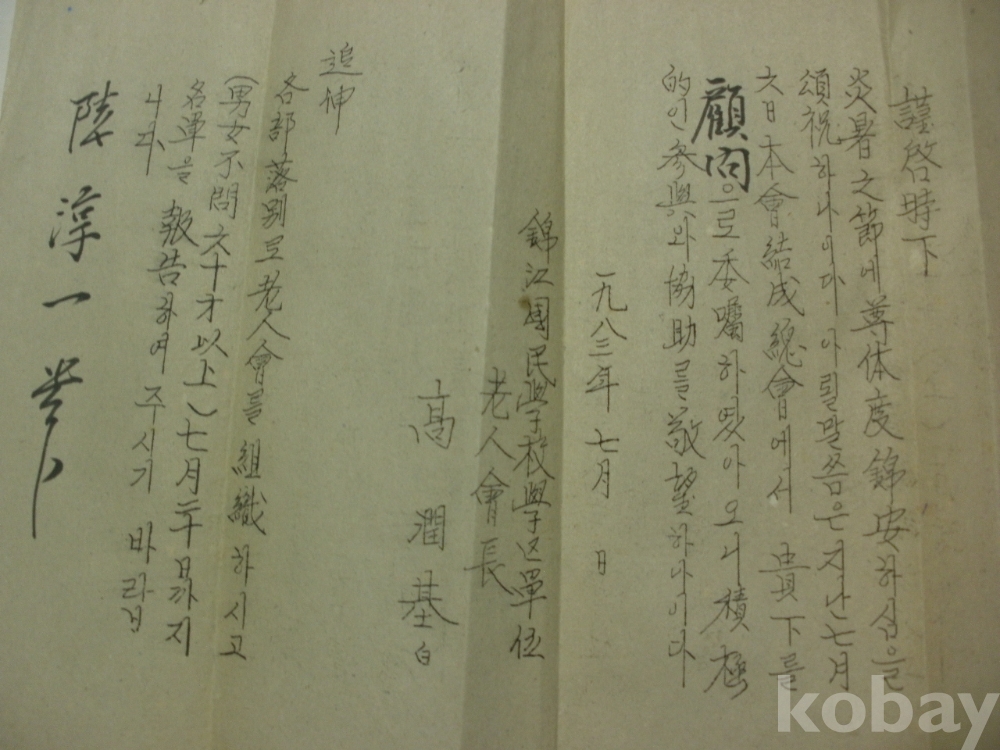 謹啓時下
炎暑之節에 尊体度錦安하심을
頌祝하나이다 아뢸말씀은 지난 七月
六日 本會結成總會에서 貴下를
顧問으로 委囑하였아오니 積極
的인 參與와 協助를 敬望하나이다
一九八三年 七月 日
錦江國民學校學区單位
老人會長
高 潤 基 白
追伸
各部落別로 老人會를 組織하시고
(男女不問 六十才以上) 七月二十日까지
名單을 報告하여 주시기 바랍
니다
陸 淳 一
kobay